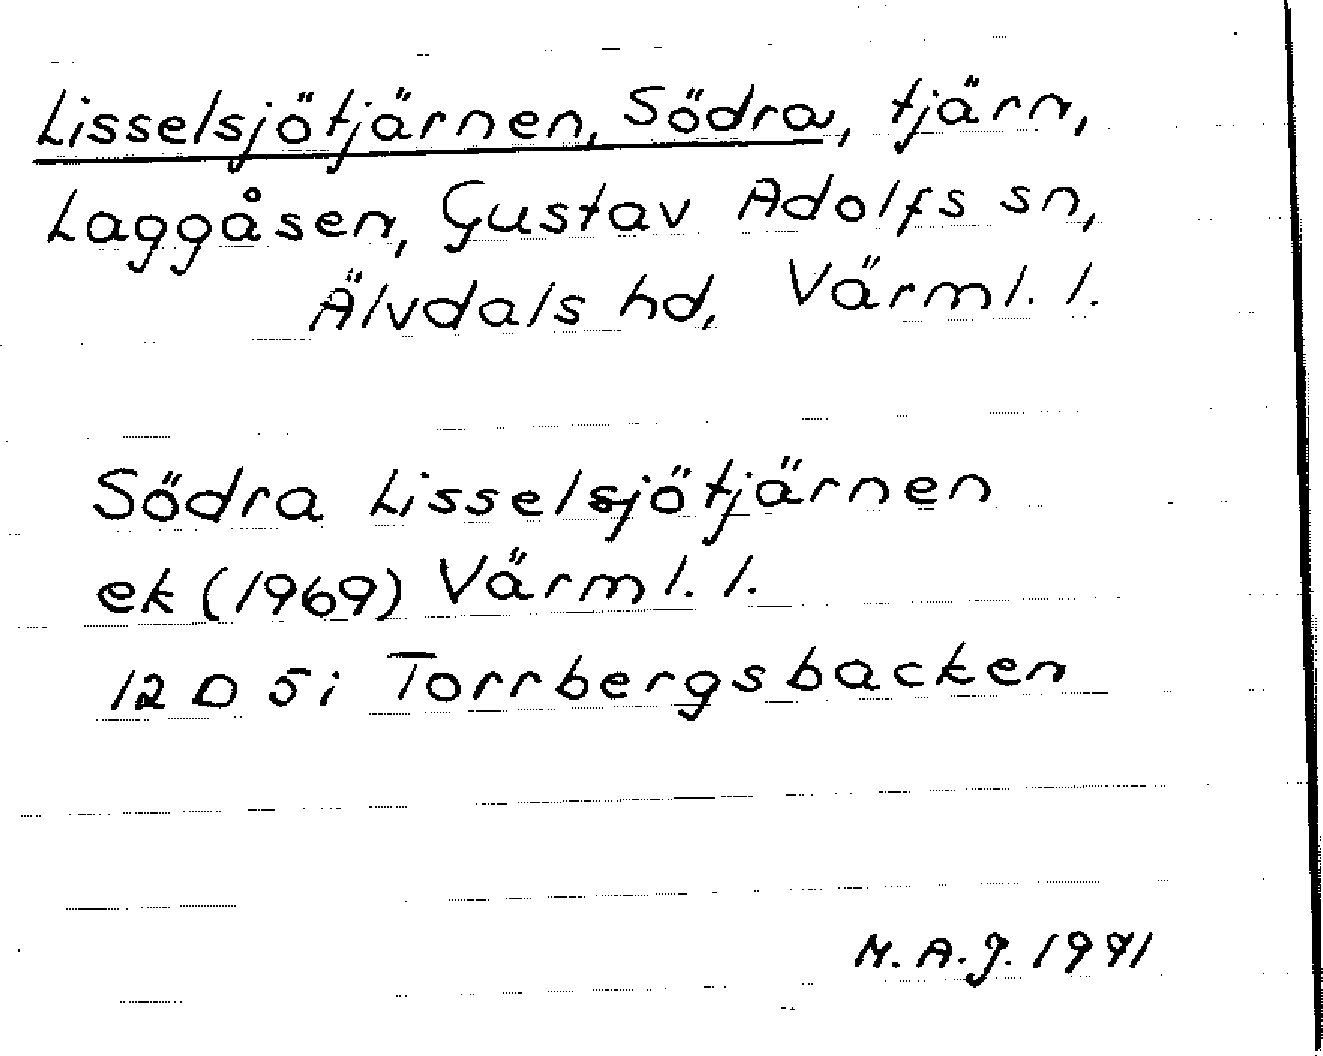 Lisselsjötjärnen, Södra, tjärn,
Laggåsen, Gustav Adolfs sn,
Älvdals hd, Värml. l.
Södra Lisselsjötjärnen
ek (1969) Värml. l.
12 D 5i Torrbergsbacken
M.A.J. 1971